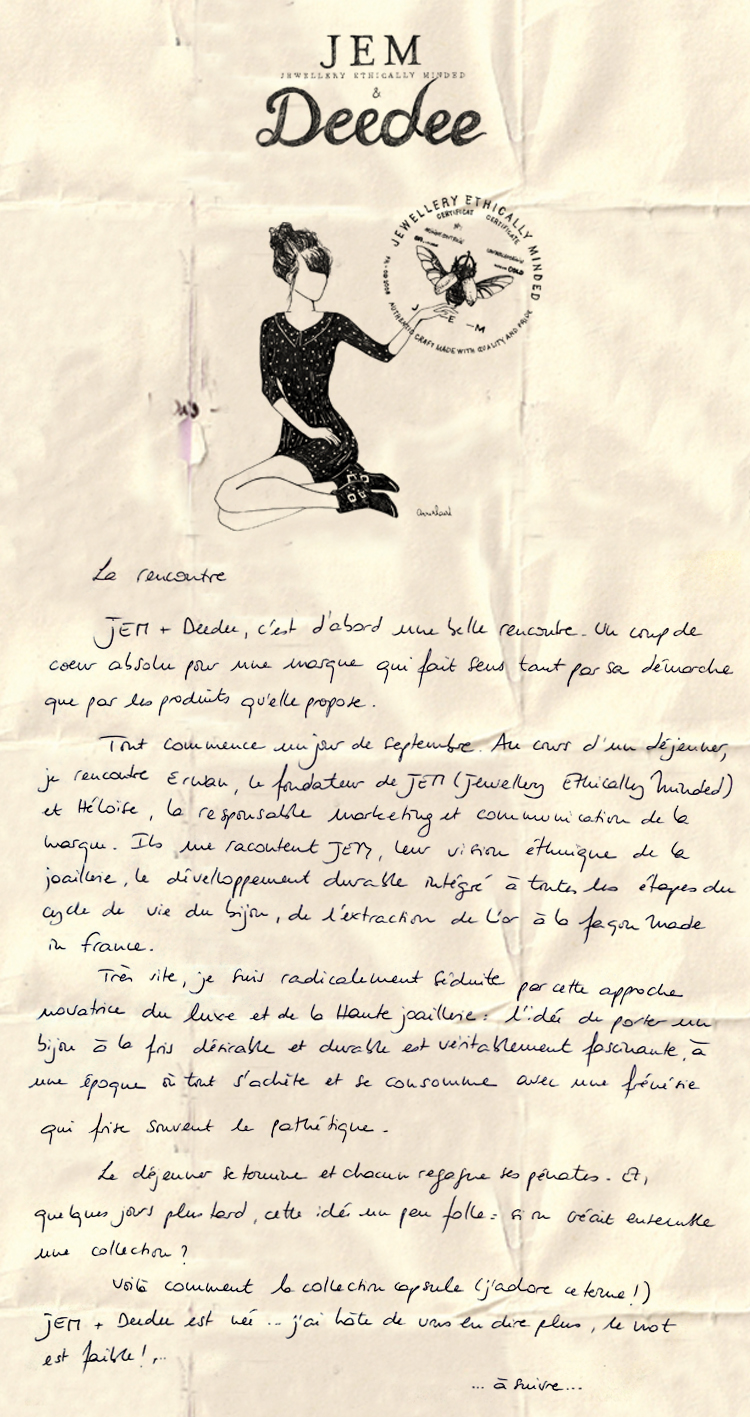 JEM
JEWELLERY ETHICALLY MINDED
&
Deedee
JEWELLERY ETHICALLY MINDED
CERTIFICAT CERTIFICATE
GOLD
J E M
AUTHENTIC CRAFT MADE WITH QUALITY AND PRIDE
La rencontre
JEM + Deedee, c'est d'abord une belle rencontre. Un coup de
coeur absolu pour une marque qui fait sens tant par sa démarche
que par les produits qu'elle propose.
Tout commence un jour de septembre. Au cours d'un déjeuner,
je rencontre Erwan, le fondateur de JEM (Jewellery Ethically Minded)
et Héloïse, la responsable marketing et communication de la
marque. Ils me racontent JEM, leur vision éthnique de la
joaillerie, le développement durable intégré à toutes les étapes du
cycle de vie du bijou, de l'extraction de l'or à la façon Made
in France.
Très vite, je suis radicalement séduite par cette approche
novatrice du luxe et de la Haute joaillerie : l'idée de porter un
bijou à la fois désirable et durable est véritablement fascinante, à
une époque où tout s'achète et se consomme avec une frénésie
qui frise souvent le pathétique.
Le déjeuner se termine et chacun regagne ses pénates. Et,
quelques jours plus tard, cette idée un peu folle : si on créait ensemble
une collection ?
Voilà comment la collection capsule (j'adore ce terme !)
JEM + Deedee est née ... j'ai hâte de vous en dire plus, le mot
est faible !...
... à suivre...